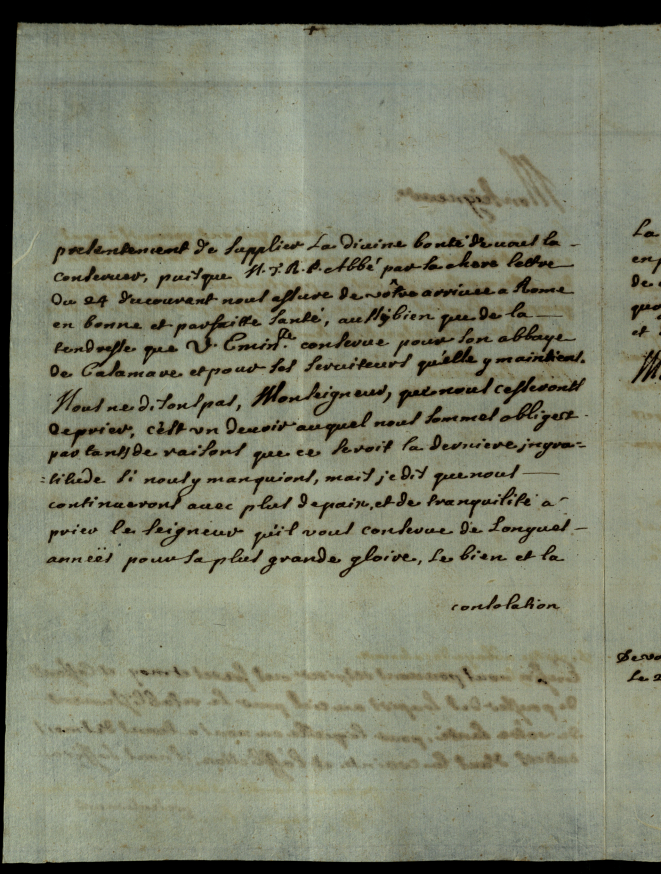 presentement de supplier La divine bonté de vous la
conserver, puisque N. T. R. P. Abbé par sa chere lettre
du 24 du courant nous assure de vôtre arrivée a Rome
en bonne et parfaitte santé, aussy bien que de la
tendresse que V. Emin.ce conserve pour son abbaye
de Casamare et pour ses serviteurs qu'elle y maintient.
Nous ne disons pas, Monseigneur, que nous cesserons
de prier, c'est un devoir auquel nous sommes obligez
par tants de raisons que ce seroit la derniere ingra=
=titude si nous y manquions, mais je dis que nous
continuerons avec plus de paix, et de tranquilité a
prier le seigneur qu'il vous conserve de Longues
années pour sa plus grande gloire, Le bien et la
consolation
La
de
et
De vo
Le 2